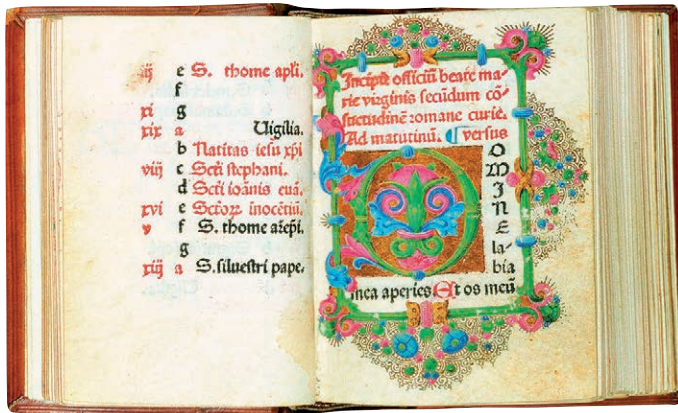 iij e S. thome apli.
f
xi g
xix a Uigilia.
b Natitas iesu xp̄i
viij c Scti stephani.
d Scti iohānis euā.
xvi e Sctoꝝ inocētiū.
v f S. thome arēpi.
g
xiij a S. siluestri pape.
Incipit officiū beate ma-
rie virginis secūdum cō-
suetudinē romane curie.
Ad matutinū. versus
DOMINE
la-
bia
mea aperies Et os meū